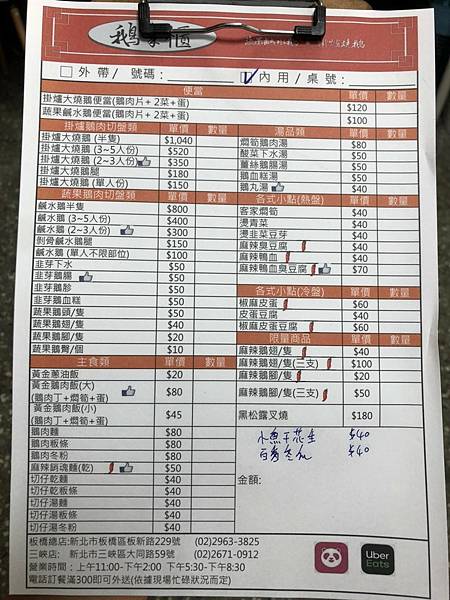 鵝掌櫃
外帶/ 號碼：
內用/桌號：
便當
掛爐大燒鵝便當(鵝肉片+ 2菜+蛋) $120
蔬果鹹水鵝便當(鵝肉片+ 2菜+蛋) $100
掛爐鵝肉切盤類 單價 數量
掛爐大燒鵝 (半隻) $1,040
掛爐大燒鵝 (3~5人份) $520
掛爐大燒鵝 (2~3人份) $350
掛爐大燒鵝腿 $180
掛爐大燒鵝 (單人份) $150
蔬果鵝肉切盤類 單價 數量
鹹水鵝半隻 $800
鹹水鵝 (3~5人份) $400
鹹水鵝 (2~3人份) $300
剝骨鹹水鵝腿 $150
鹹水鵝 (單人不限部位) $100
韭芽下水 $50
韭芽鵝腸 $50
韭芽鵝胗 $50
韭芽鵝血糕 $50
蔬果鵝頭/隻 $50
蔬果鵝翅/隻 $40
蔬果鵝腳/隻 $20
蔬果鵝臀/個 $10
主食類 單價 數量
黃金蔥油飯 $20
黃金鵝肉飯(大)
(鵝肉丁+燜筍+蛋) $80
黃金鵝肉飯(小)
(鵝肉丁+燜筍+蛋) $45
鵝肉麵 $80
鵝肉粄條 $80
鵝肉冬粉 $80
麻辣銷魂麵(乾) $50
切仔乾麵 $40
切仔乾粄條 $40
切仔湯麵 $40
切仔湯粄條 $40
切仔湯冬粉 $40
湯品類 單價 數量
燜筍鵝肉湯 $80
酸菜下水湯 $50
薑絲鵝腸湯 $50
鵝血糕湯 $50
鵝丸湯 $40
各式小點(熱盤) 單價 數量
客家燜筍 $40
燙青菜 $40
燙韭菜豆芽 $40
麻辣臭豆腐 $40
麻辣鴨血 $40
麻辣鴨血臭豆腐 $70
各式小點(冷盤) 單價 數量
椒麻皮蛋 $60
皮蛋豆腐 $40
椒麻皮蛋豆腐 $60
限量商品 單價 數量
麻辣鵝翅/隻 $40
麻辣鵝翅/隻(三支) $100
麻辣鵝腳/隻 $20
麻辣鵝腳/隻(三支) $50
黑松露叉燒 $180
小魚干花生 $40
百香冬瓜 $40
金額:
板橋總店:新北市板橋區板新路229號 (02)2963-3825
三峽店: 新北市三峽區大同路59號 (02)2671-0912
營業時間：上午11:00-下午2:00 下午5:30-下午8:30
電話訂餐滿300即可外送(依據現場忙碌狀況而定)
Uber
Eats